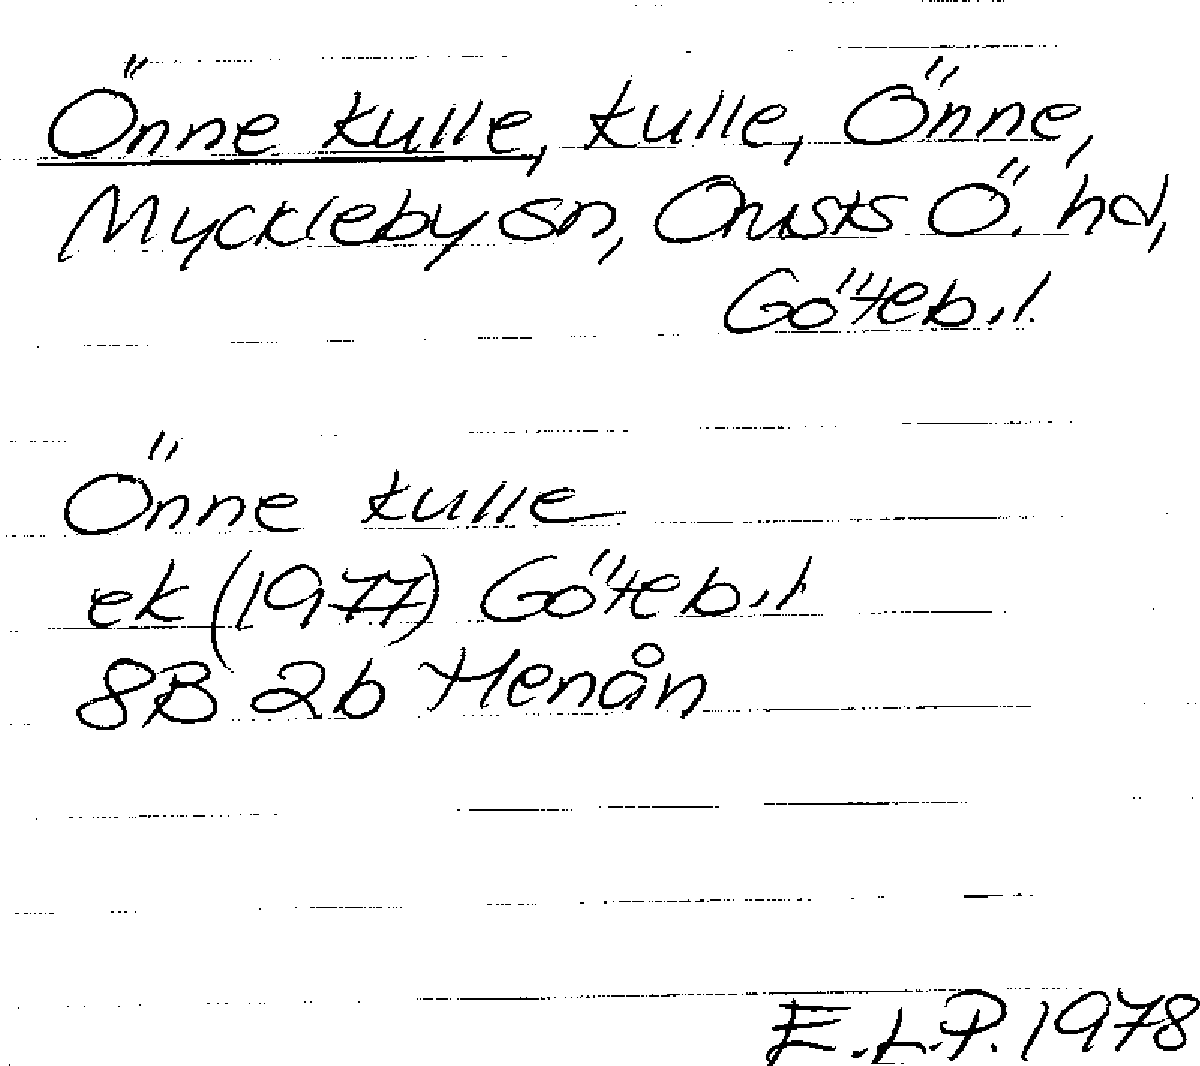 Önne kulle, kulle, Önne,
Myckleby sn, Orusts Ö. hd,
Göteb. l.
Önne kulle
ek (1977) Göteb. l
8B 2b Henån
E.L.P. 1978